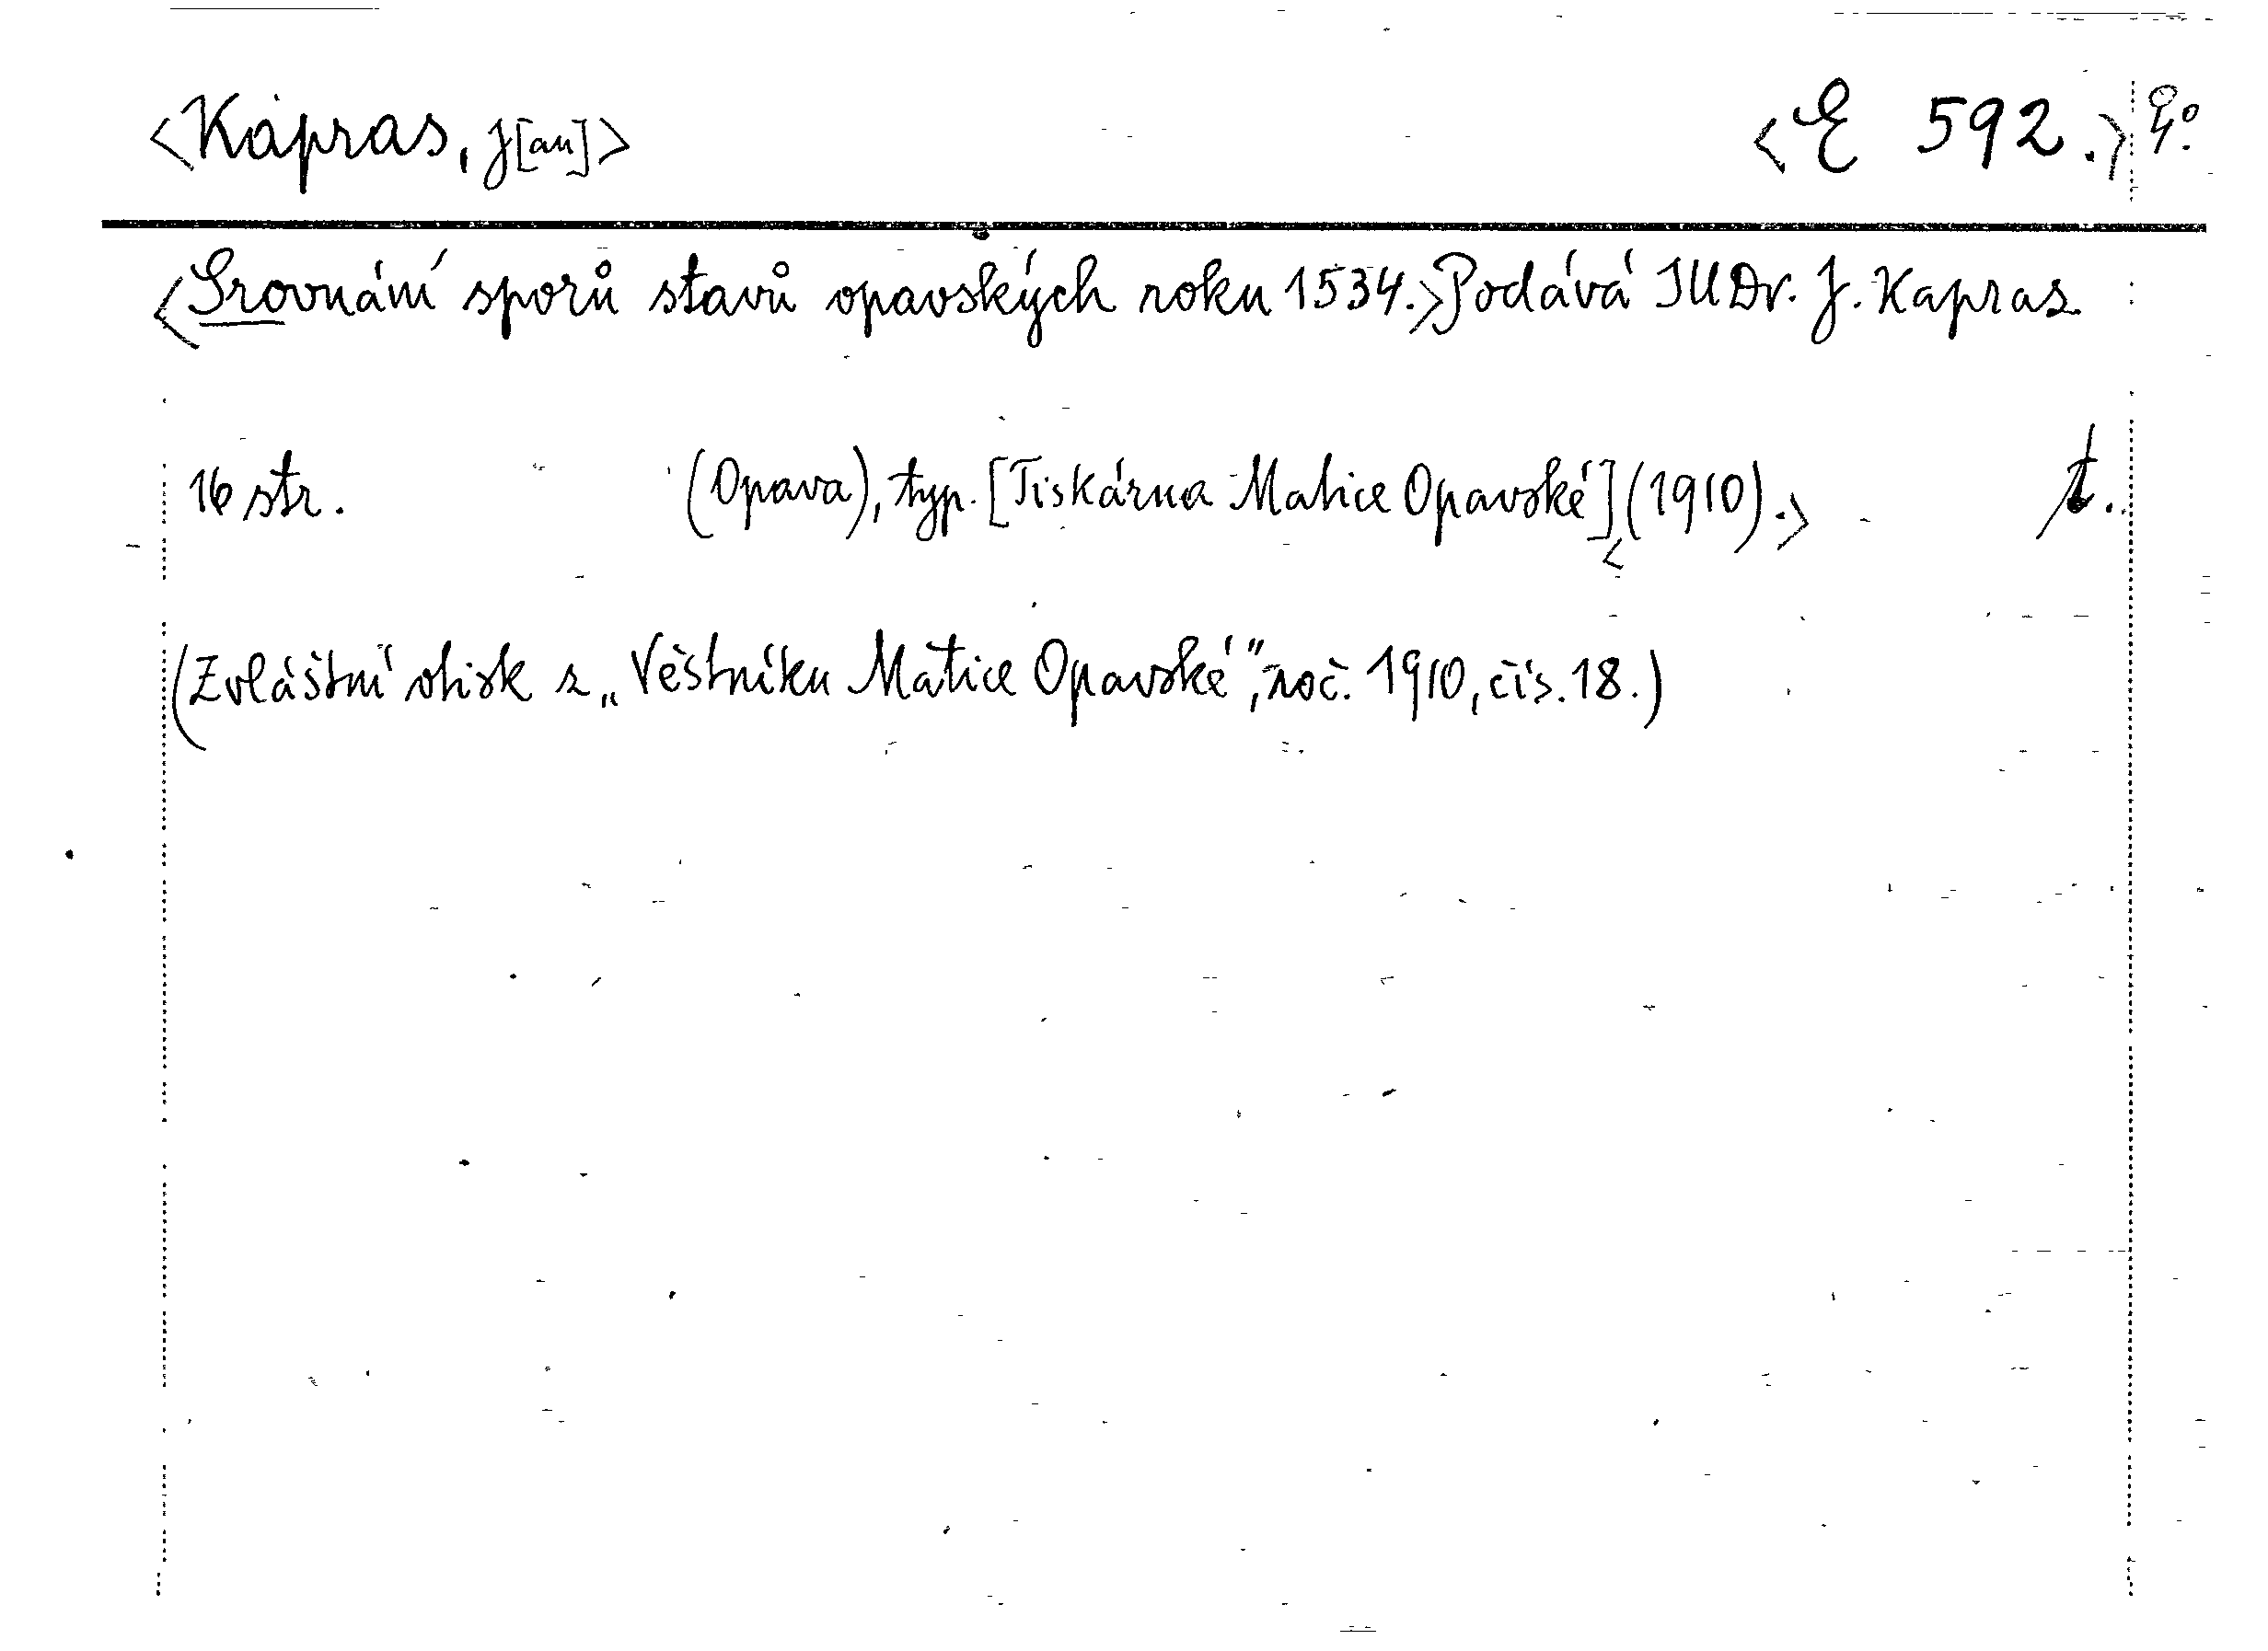 <Kapras, J[an]> <E 592.> 4°.
<Srovnání sporů stavů opavských roku 1534.> Podává JUDr. J. Kapras.
16 str. (Opava), typ. [Tiskárna Matice Opavské] <(1910).> t.
(Zvláštní otisk z „Věstníku Matice Opavské", roč. 1910, čís. 18.)